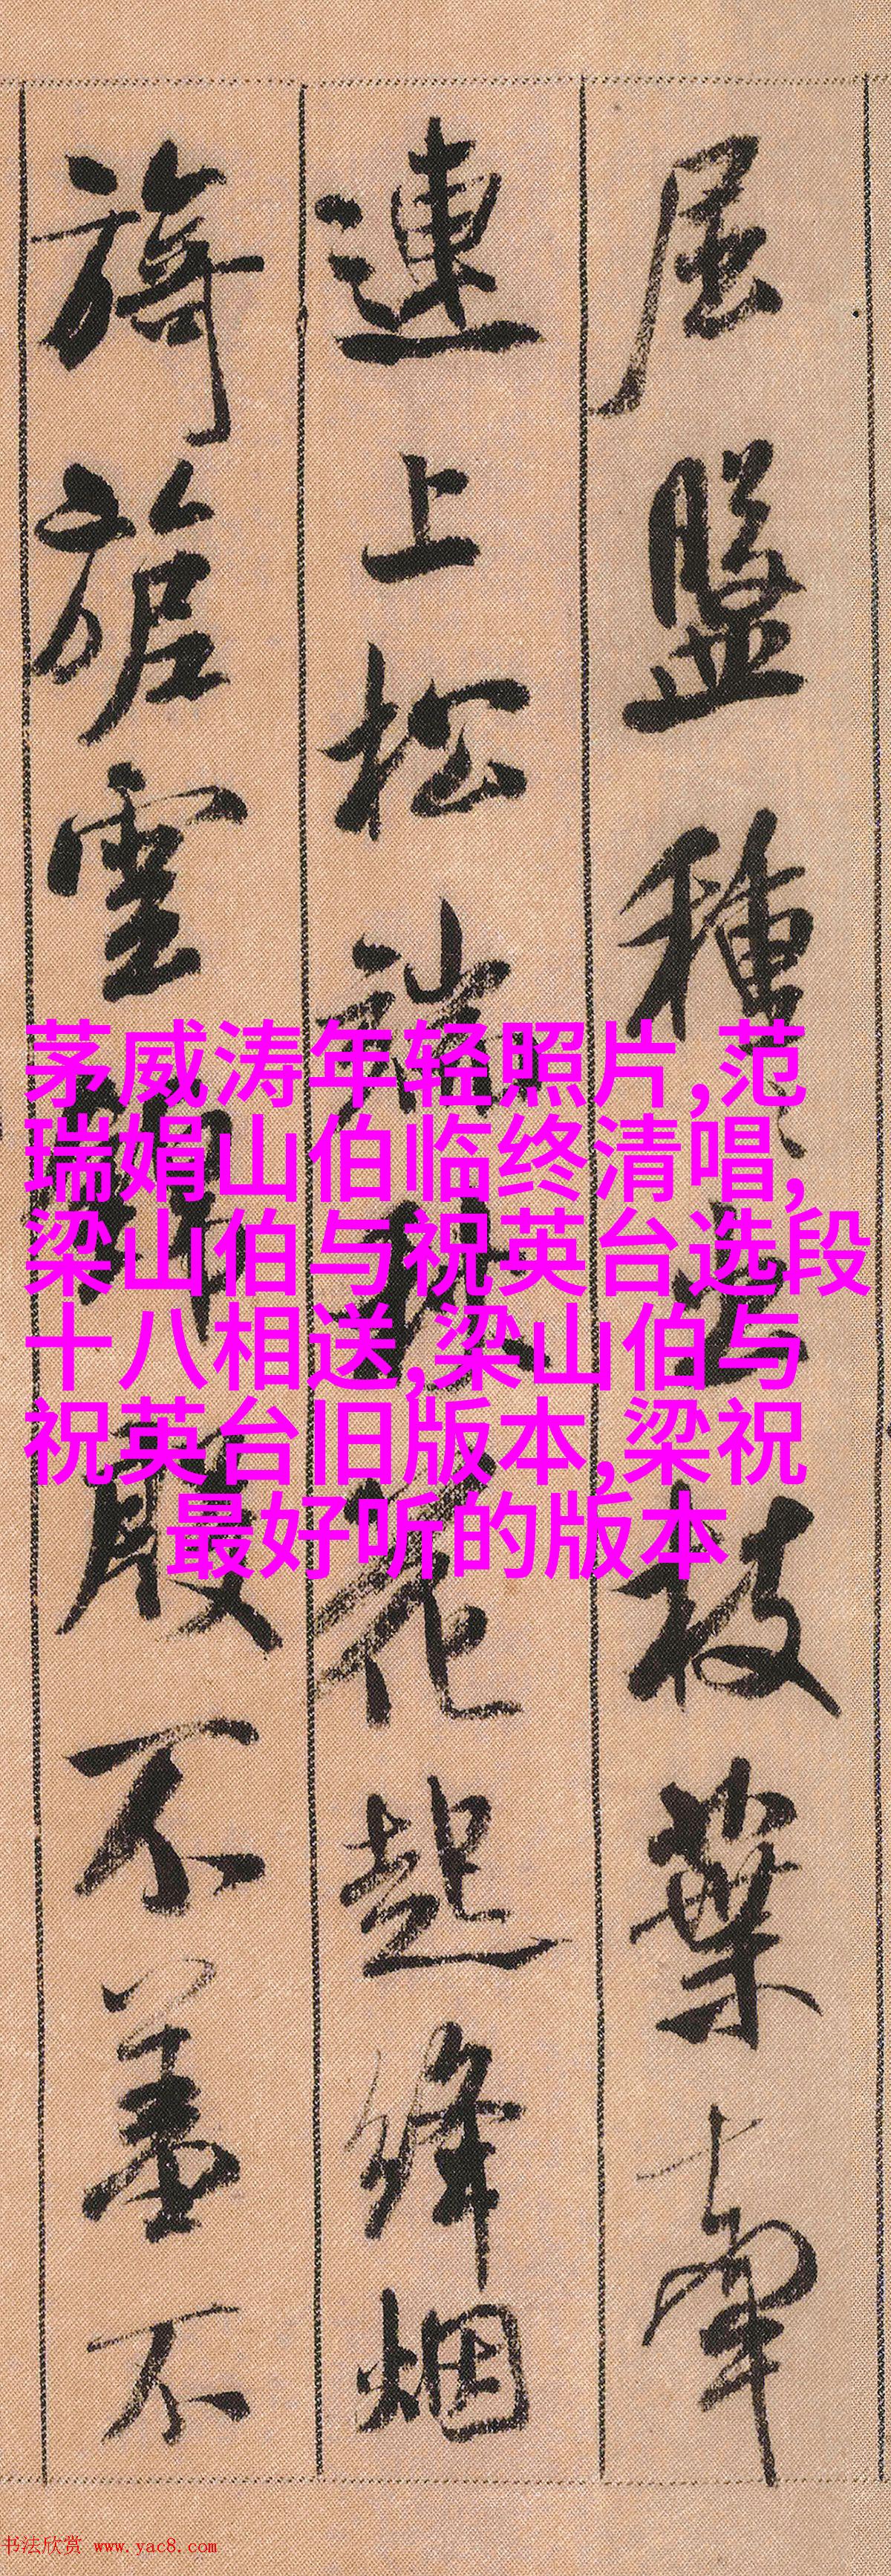 屈盤種之枝葉牽
連上松端秋花起絳烟
旖旎雲錦殷不羞不
茅威涛年轻照片,范
瑞娟山伯临终清唱,
梁山伯与祝英台选段
十八相送,梁山伯与
祝英台旧版本,梁祝
最好听的版本
书法欣赏 www.yac8.com